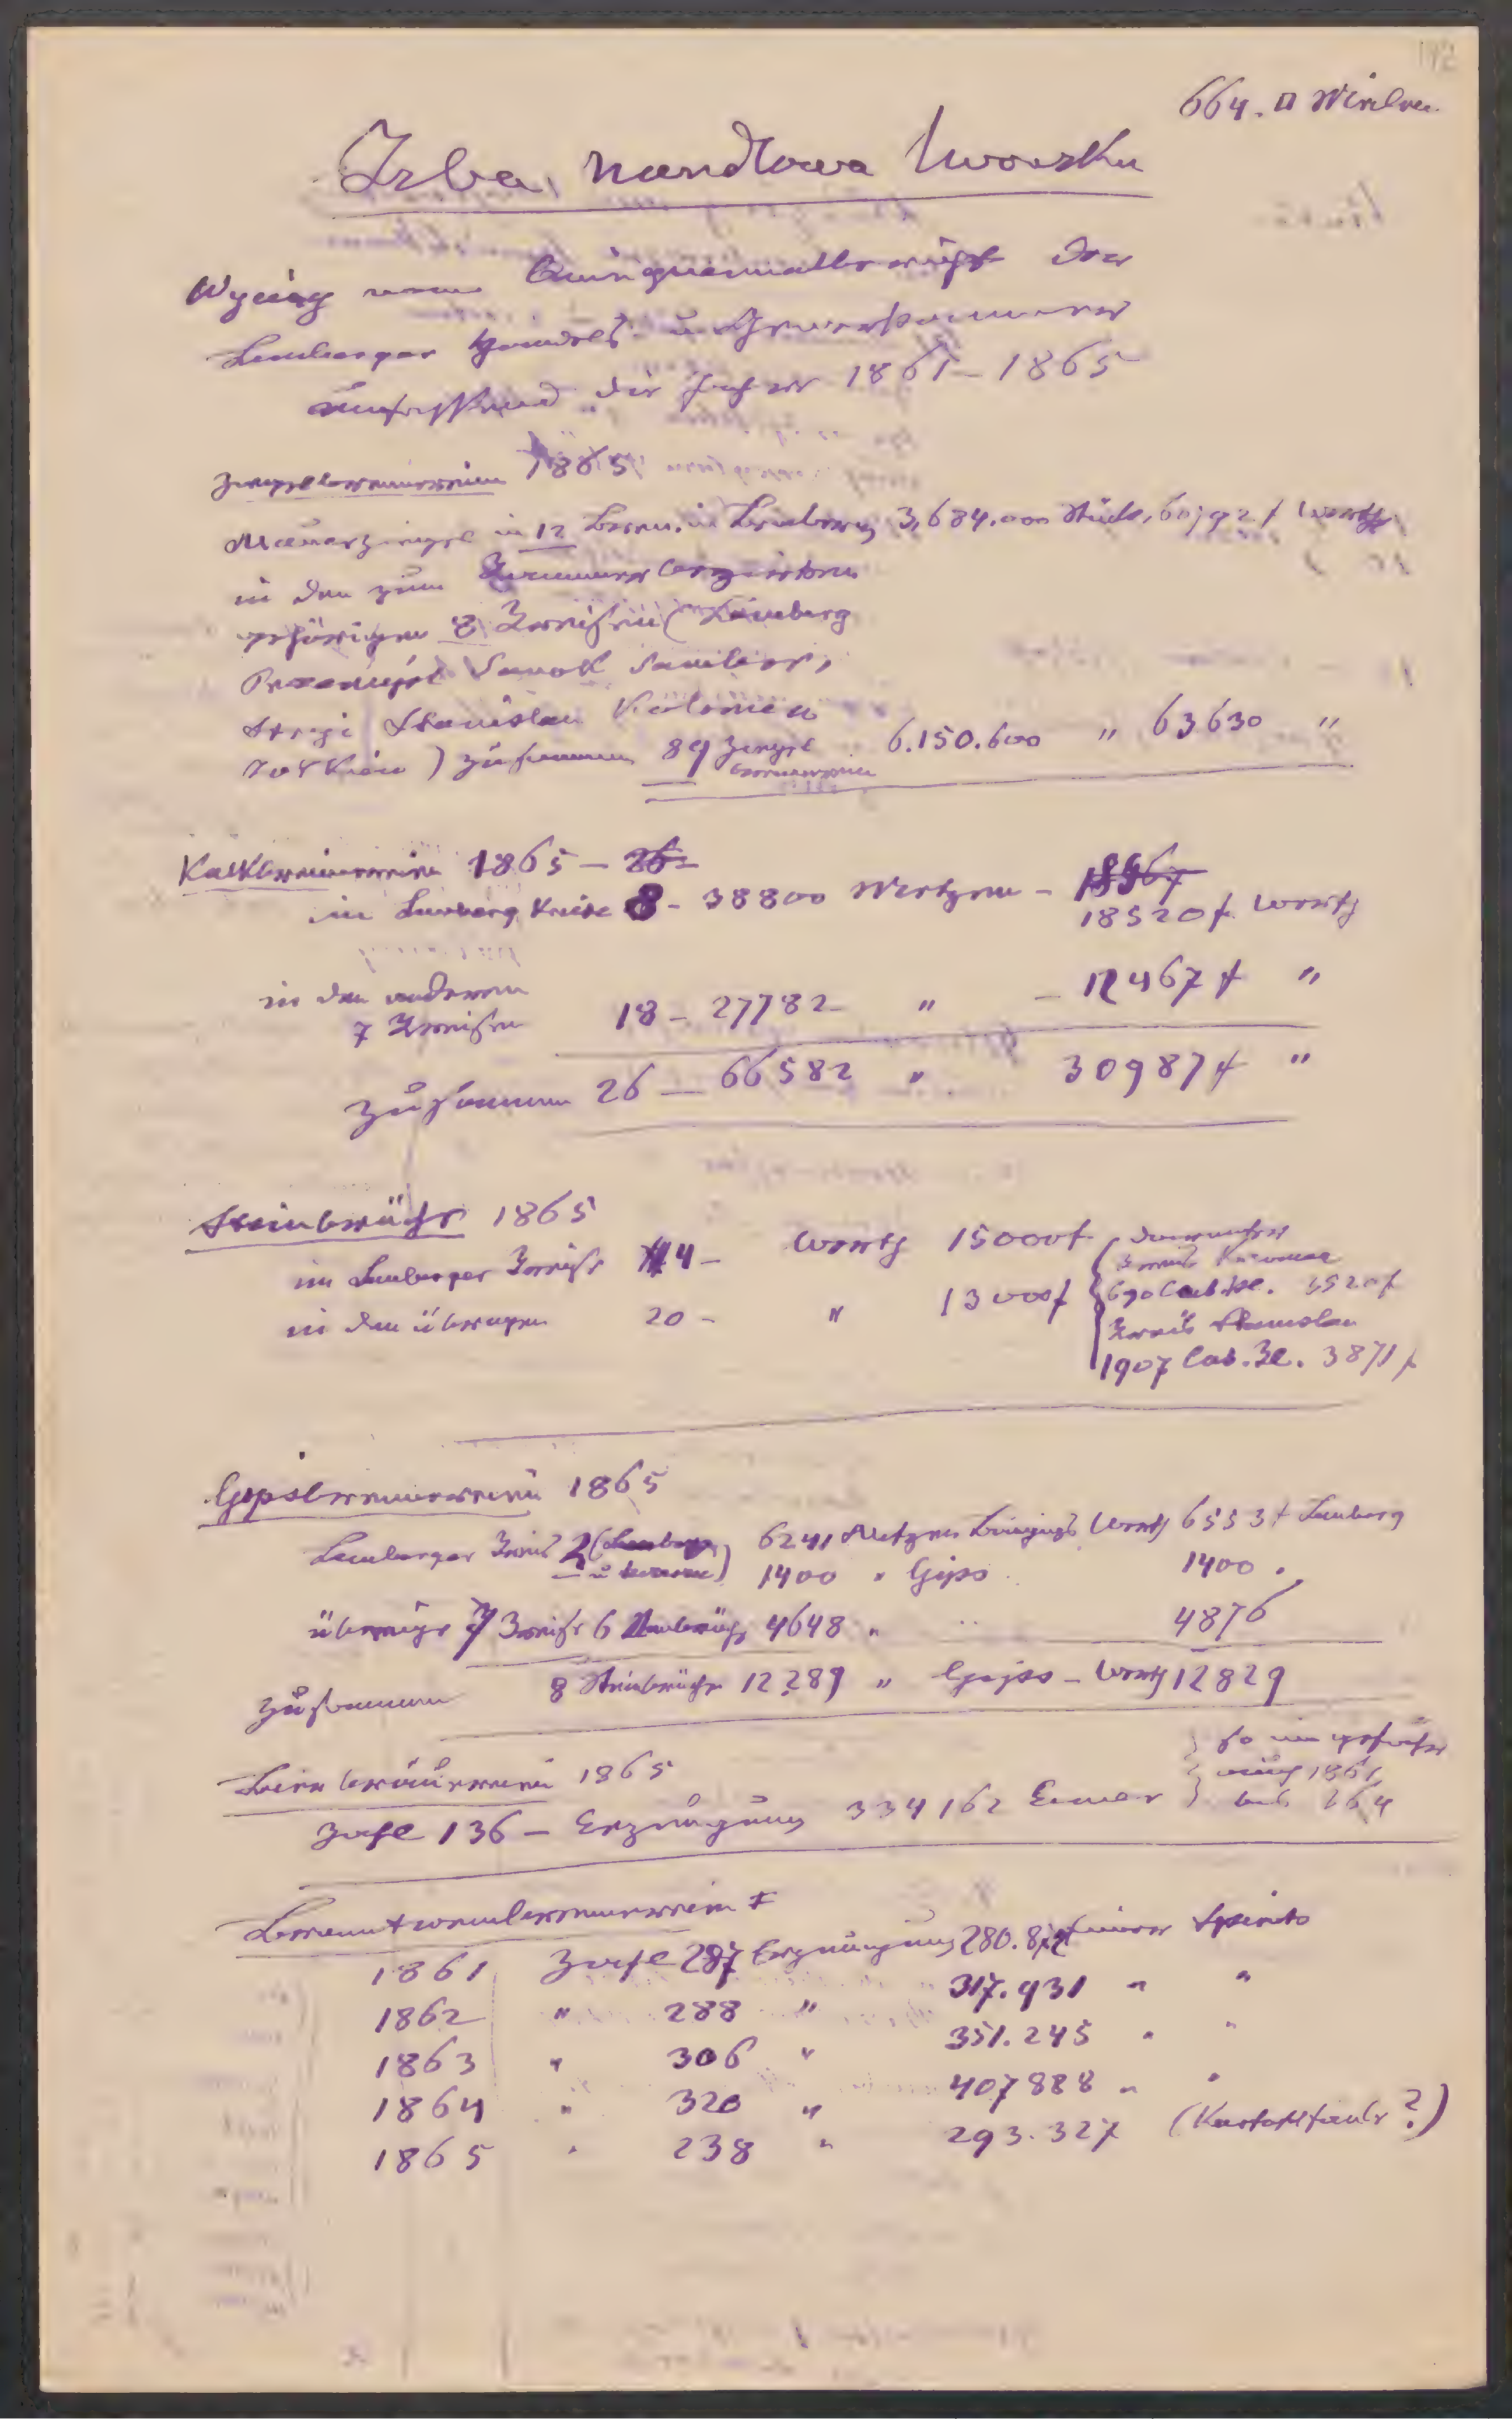 664. □
Izba handlowa lwowska
Wyciąg vom Quinquennalbericht der
Lemberger Handels- u Gewerbekammer
umfassend die Jahre 1861–1865
Ziegelbrennereien 1865
Mauerziegel in 12 Brenn. in Lemberg 3,684.000 Stück, 60,92 f Werth
in den zum Kammerbezirke
gehörigen 8 Kreisen (Lemberg
Przemyśl Sanok Sambor,
Stryj Stanislau Kolomea
Żołkiew) zusammen 89 Ziegel 6.150.600 " 63630 "
brennereien
Kalkbrennereien 1865 – 26 –
in Lemberg Kreise 8 – 38800 Metzen – 18520 f. Werth
in den anderen
7 Kreisen 18 – 27782 " – 12467 f "
Zusammen 26 – 66582 " 30987 f "
Steinbrüche 1865
im Lemberger Kreise 4 – Werth 15000 f. darunter
in den übrigen 20 – " 13000 f
Kreis
690 Cub. Kl. 3520 f
Kreis Stanislau
1907 Cub. Kl. 3871 f
Gypsbrennereien 1865
Lemberger Kreis 2 (Lemberg 6241 Metzen Werth 6553 f Lemberg
u ) 1400 " Gips 1400 "
übrige 7 Kreise 6 Steinbrüche 4648 " 4876
Zusammen 8 Steinbrüche 12289 " Gyps – Werth 12829
Bierbräuereien 1865
so ungefähr
auch 1861
bis 1864
Zahl 136 – Erzeugung 334162 Eimer
Branntweinbrennereien
1861 Zahl 287 Erzeugung 280.872 Eimer Spirits
1862 " 288 " 317.931 " "
1863 " 306 " 351.245 " "
1864 " 320 " 407888 " "
1865 " 238 " 293.327 (Kartoffelfäule?)